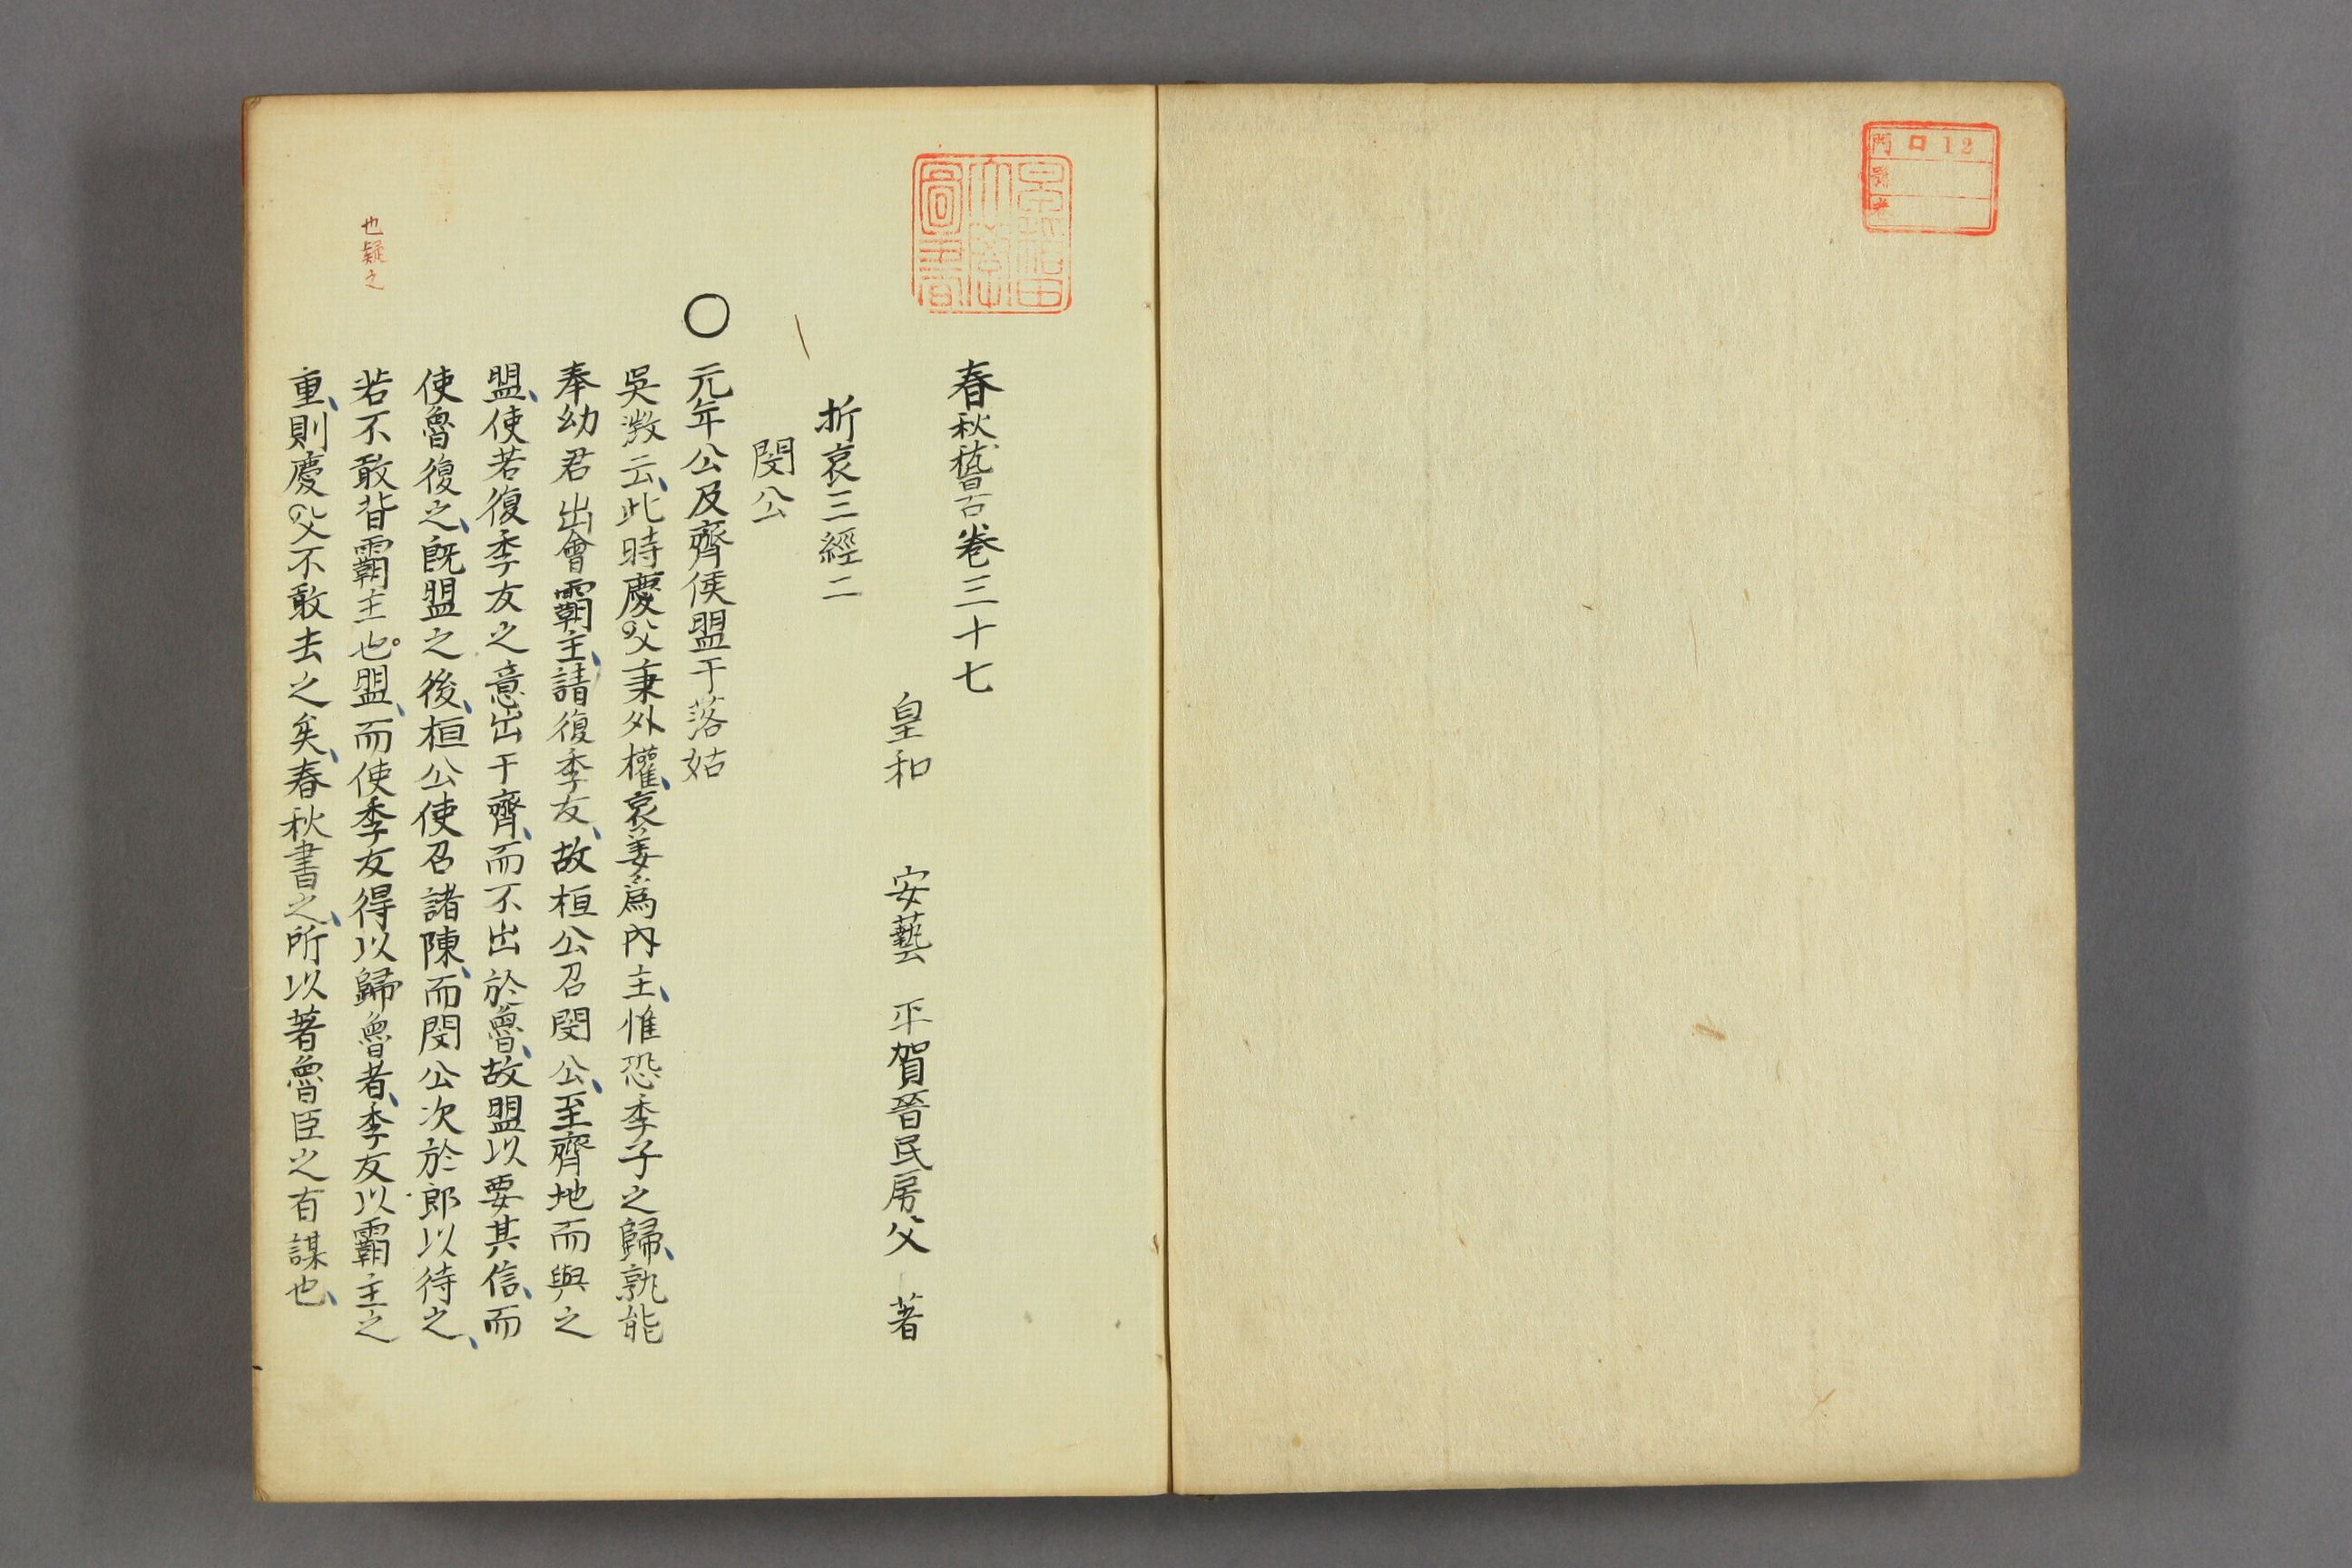 門 口 12
號
卷
早稲田
大學
圖書
春秋稽古卷三十七
皇和 安藝 平賀晉民房父 著
折衷三經二
閔公
○元年公及齊侯盟于落姑
吳澂云、此時慶父秉外權、哀姜為內主、惟恐季子之歸、孰能
奉幼君出會霸主、請復季友、故桓公召閔公、至齊地而與之
盟、使若復季友之意出于齊、而不出於魯、故盟以要其信、而
使魯復之、既盟之後、桓公使召諸陳、而閔公次於郎以待之、
若不敢背霸主也。盟、而使季友得以歸魯者、季友以霸主之
重、則慶父不敢去之矣、春秋書之、所以著魯臣之有謀也、
也疑之